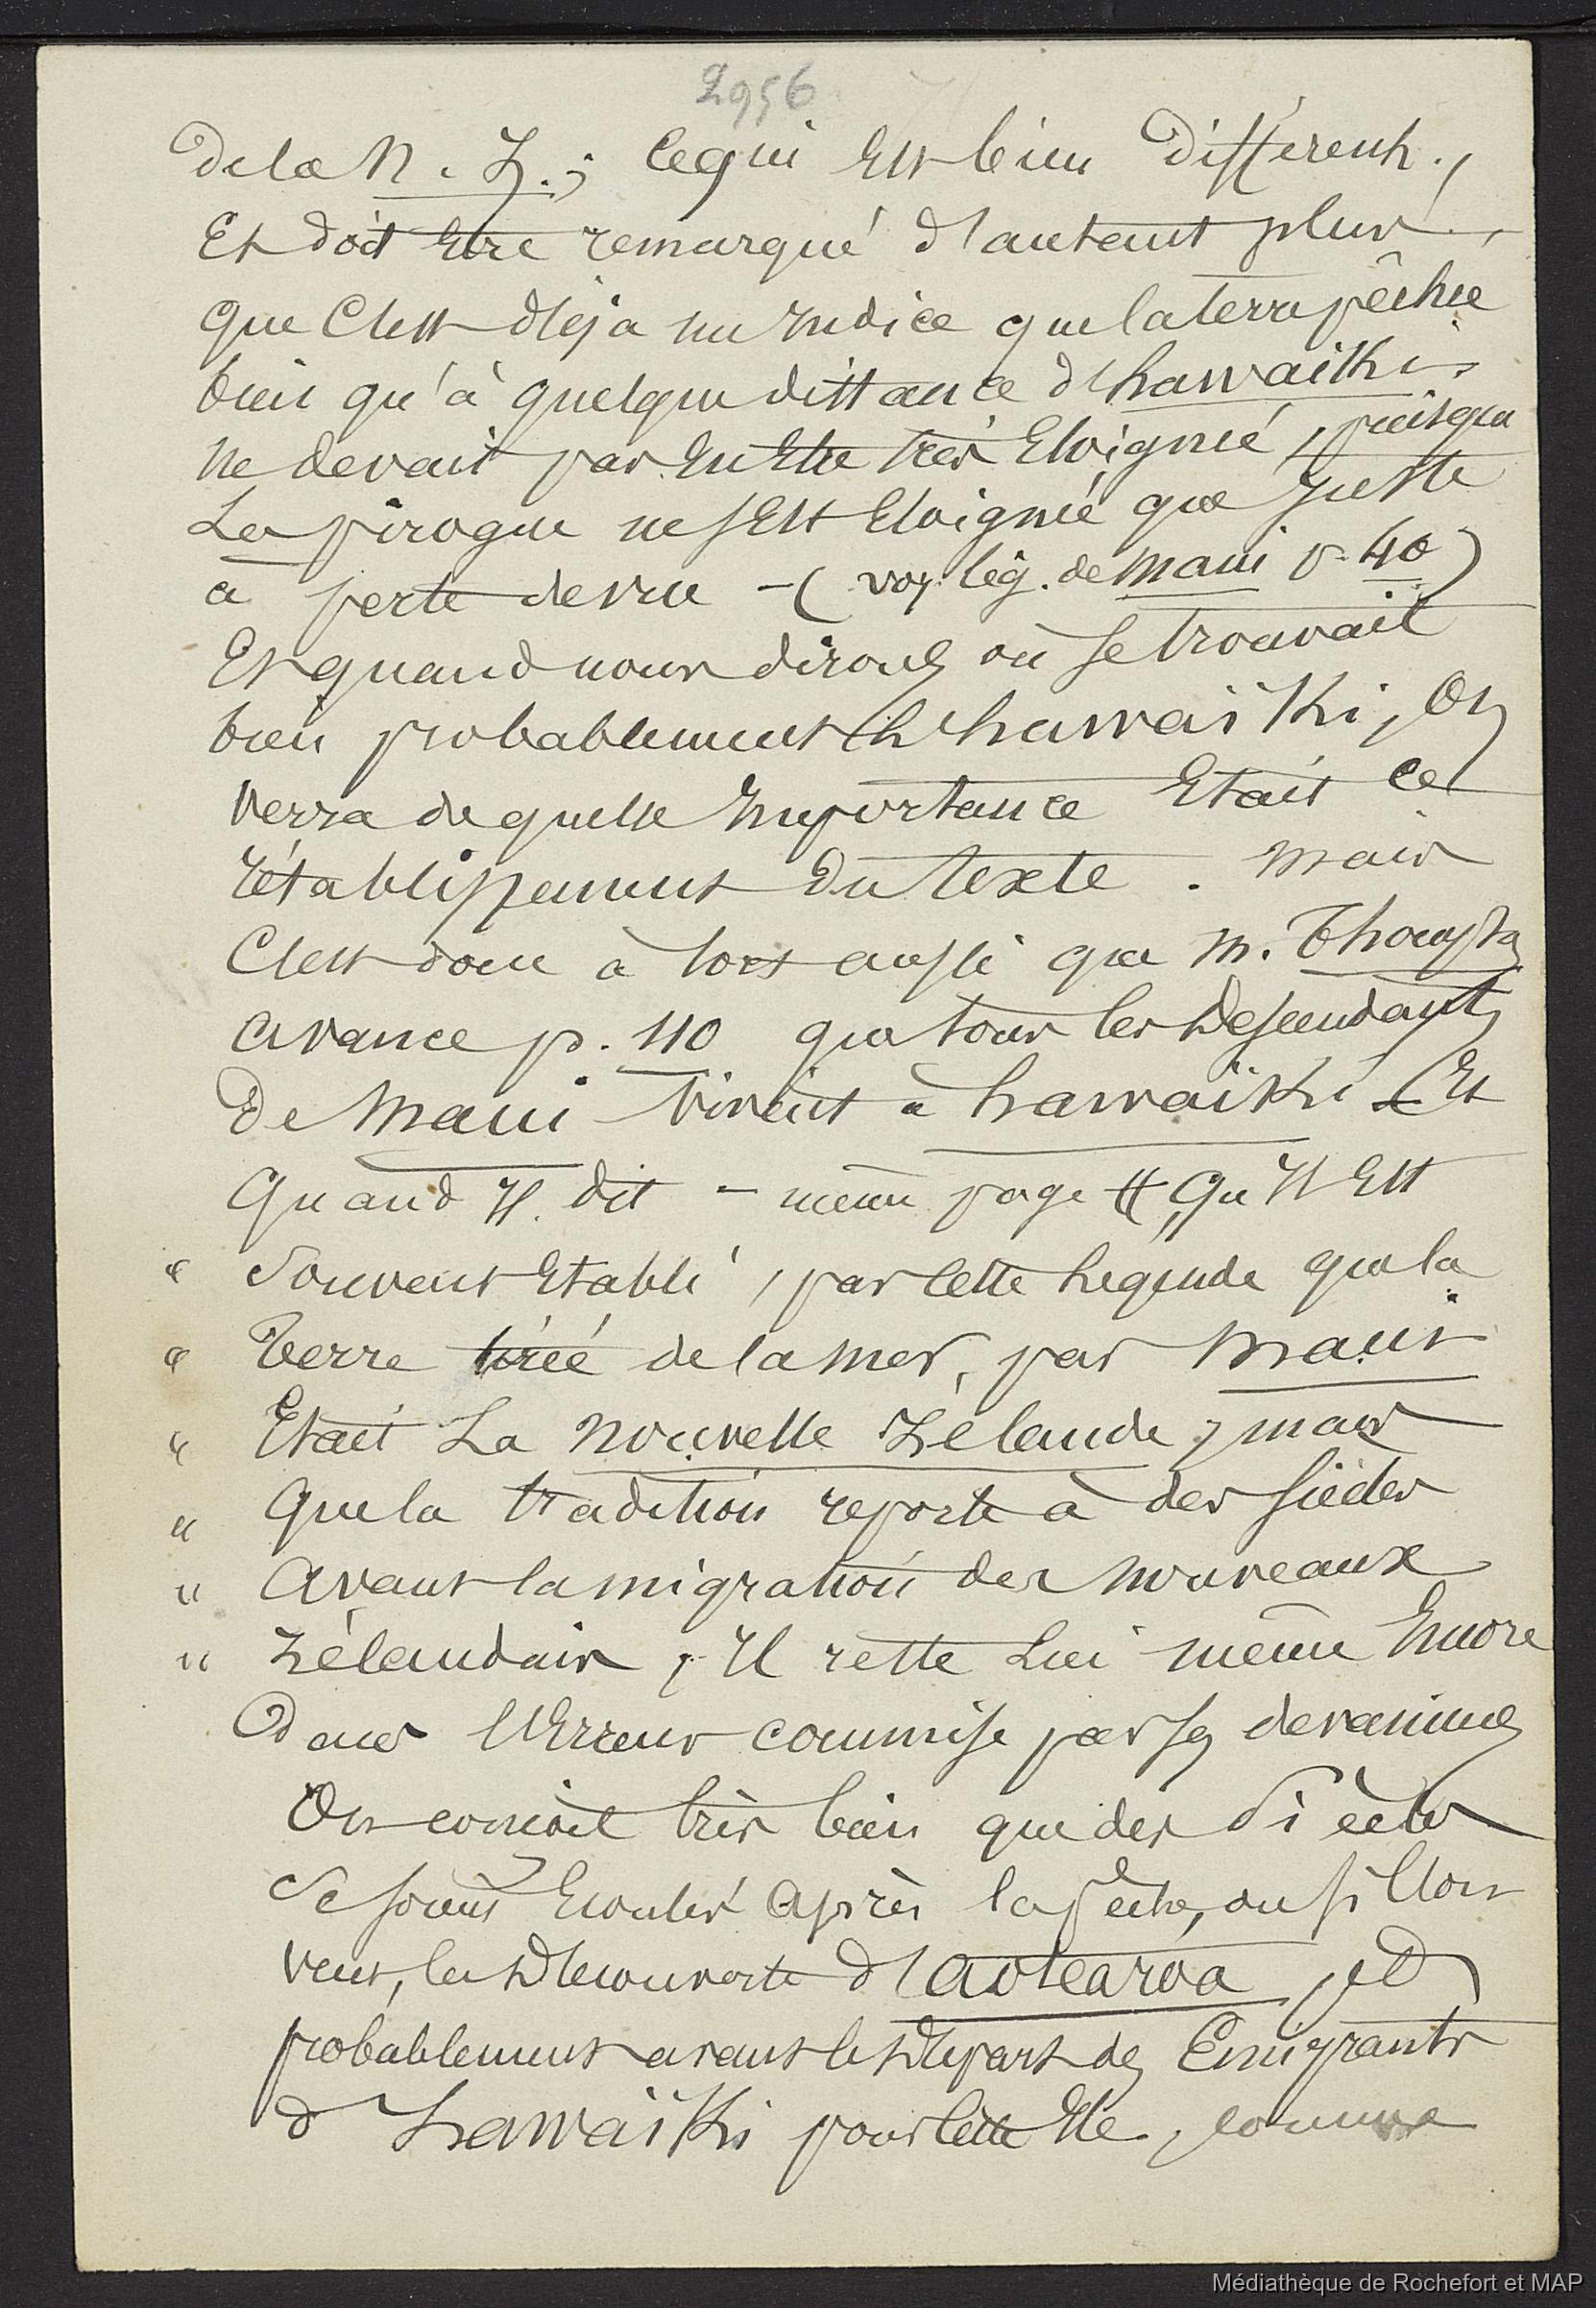 2956
de la N. Z.; ce qui est bien différent.,
Et doit être remarqué d'autant plus,
que c'est déja un indice que la terre pêchée
bien qu'à quelque distance d'hawaïki
ne devait pas en être très Eloignée, puisque
La pirogue ne s'est Eloignée que juste
à perte de vue – (voy. lég. de Maui p. 40)
Et quand nous dirons où se trouvait
bien probablement l'hawaïki, On
verra de quelle importance Etait ce
rétablissement du texte. Mais
C'est donc à tort aussi que M. Thompson
avance p. 110 que tous les Descendants
De Maui vivent à hawaïki. Et
Quand Il dit – même page "qu'Il est
" Souvent Etabli, par cette légende que la
" Terre tirée de la mer, par Maui
" Etait La Nouvelle Zélande, mais
" Que la tradition reporte à des siècles
" Avant la migration des nouveaux
" Zélandais, Il reste lui même Encore
Dans l'Erreur commise par ses devanciers
On conçoit très bien que des Siècles
Se soient Ecoulés après la pêche, ou si l'on
veut, la Découverte d'Aotearoa, et
probablement avant le Départ des Emigrants
d'hawaïki pour cette Ile, comme
Médiathèque de Rochefort et MAP